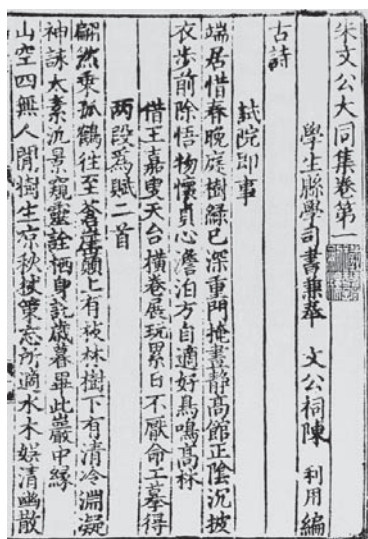 朱文公大同集卷第一
學生縣學司書兼奉 文公祠陳 利用 編
古詩
試院即事
端居惜春晚庭樹綠已深重門掩晝靜髙館正陰沉披
衣步前除悟物懷貞心澹泊方自適好鳥鳴髙林
借王嘉叟天台橫卷展玩累日不厭命工摹得
两段爲賦二首
翩然乗孤鶴往至蒼崖顛上有梭林樹下有清泠淵凝
神詠太素沉景窺靈詮栖身託歳暮畢此巖中緣
山空四無人閒樹生凉秋杖策忘所適水木娯清幽散